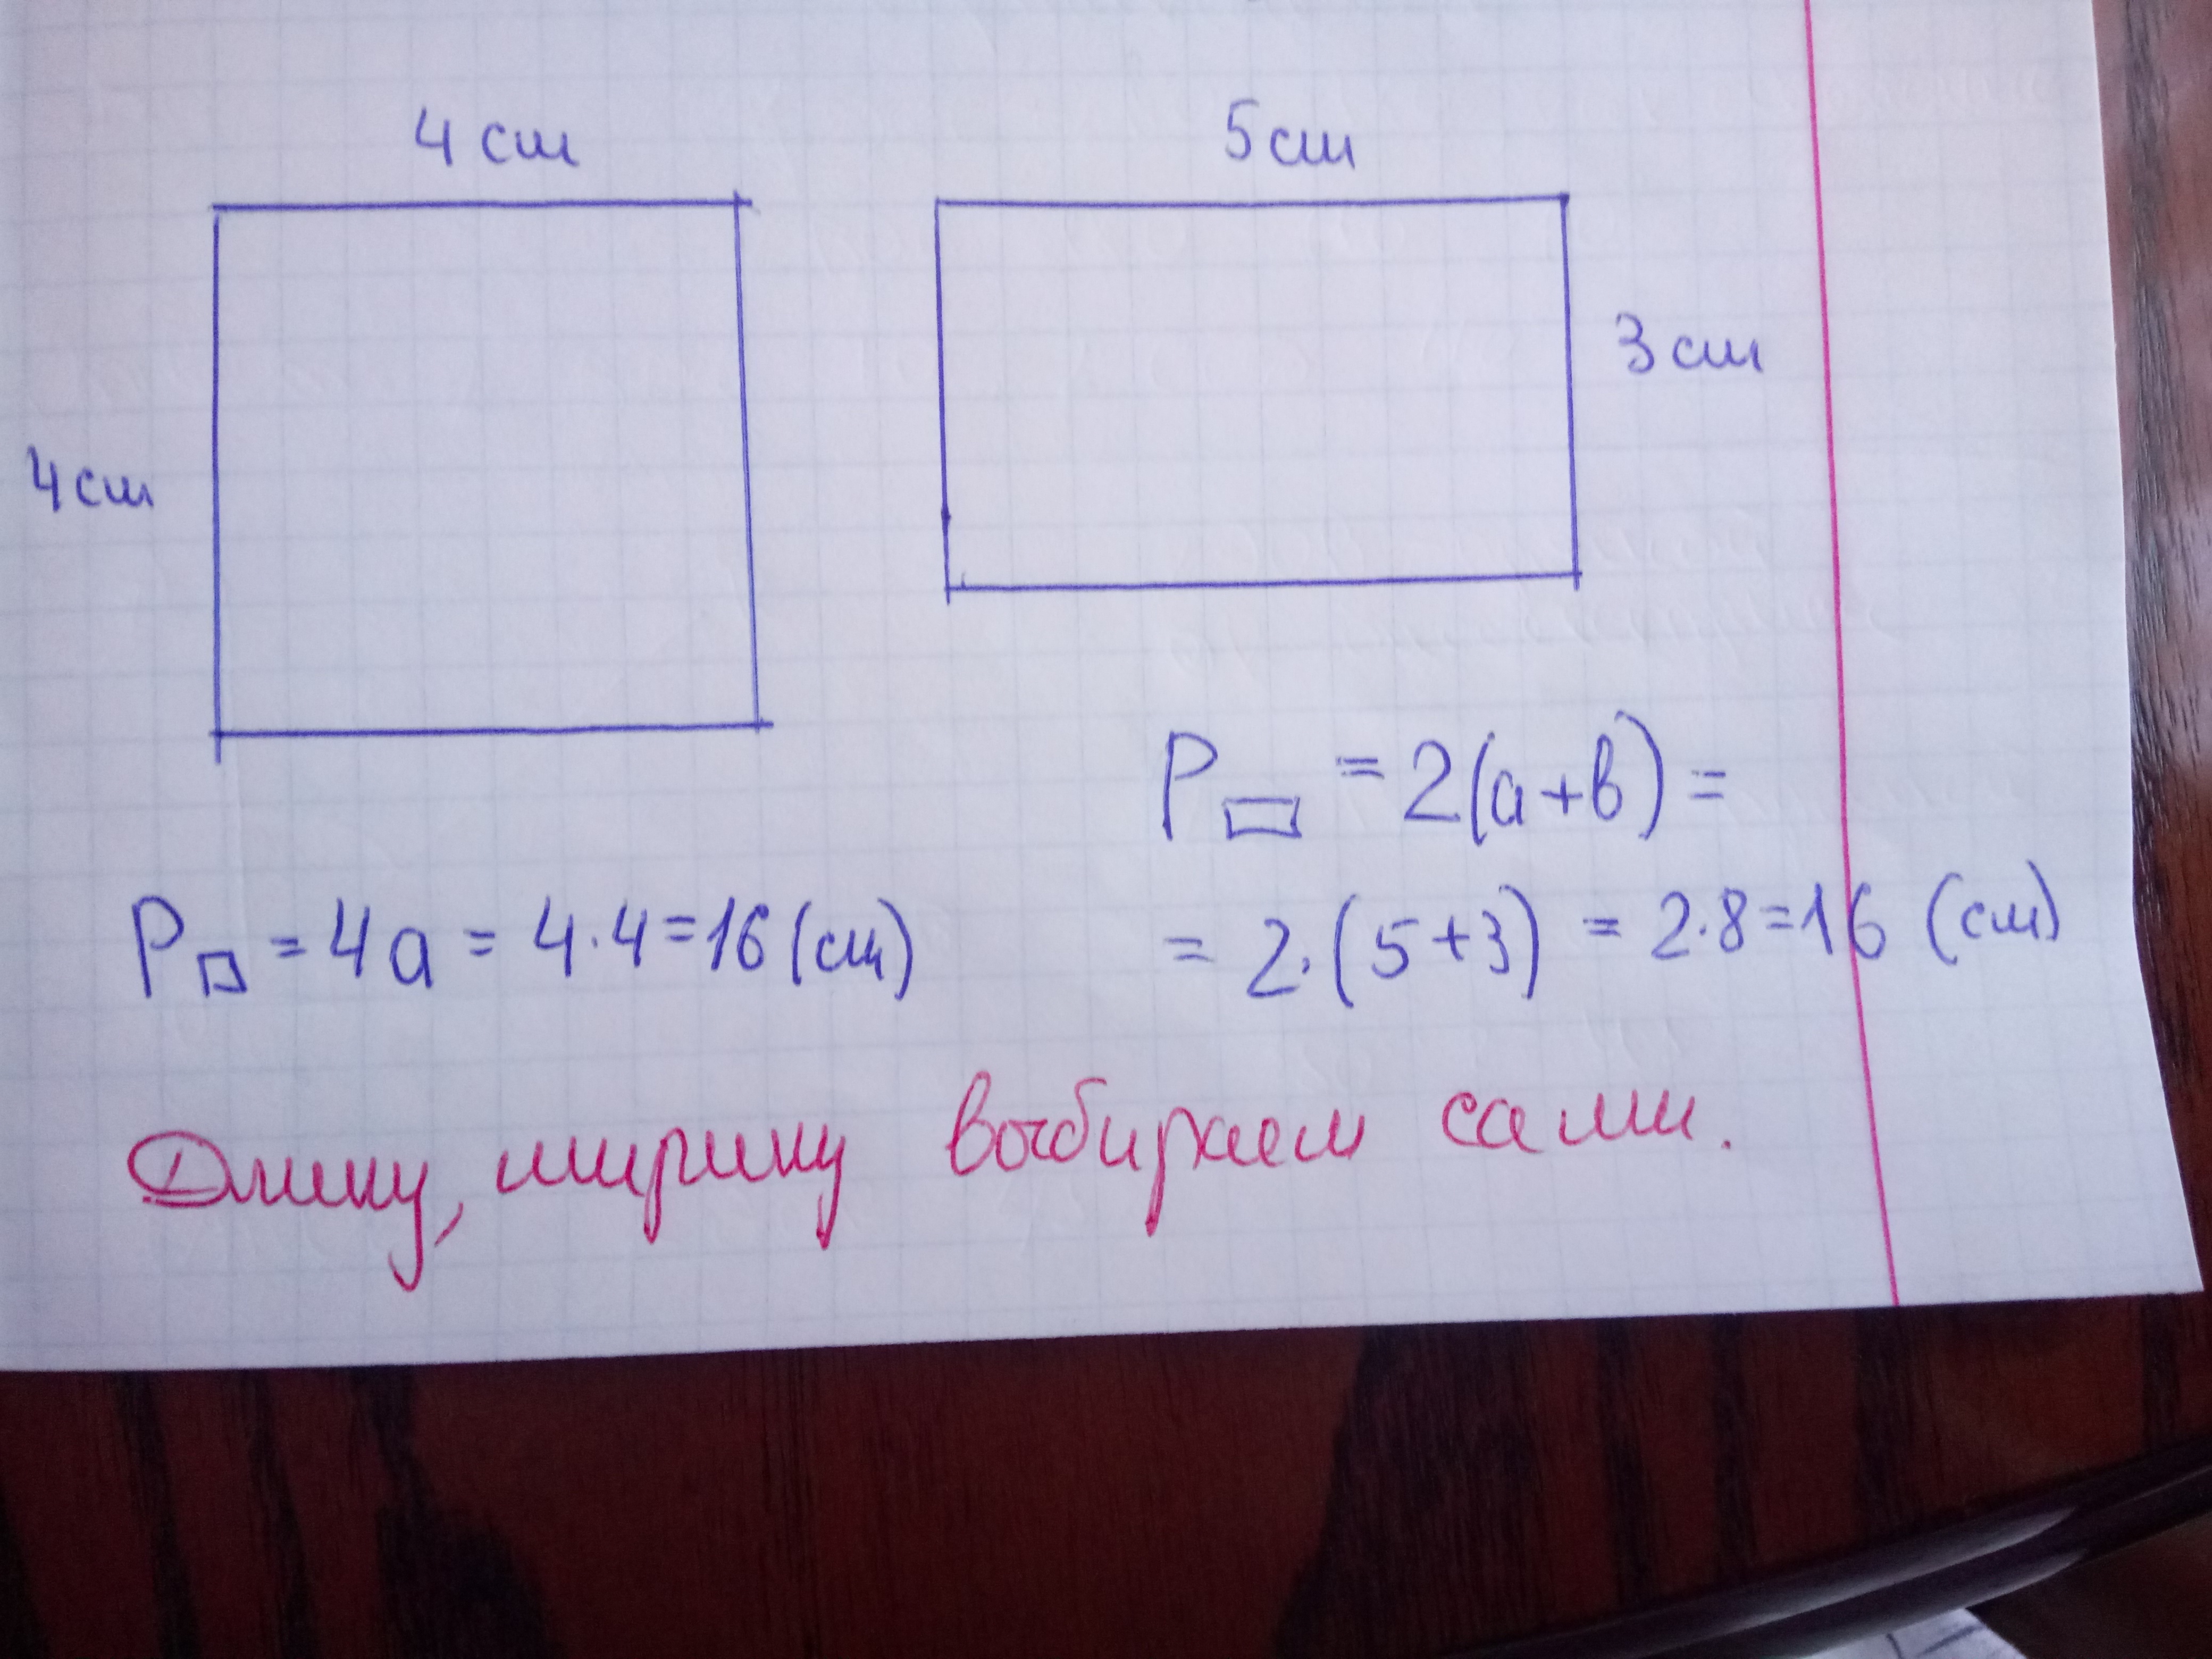 4 см
5 см
3 см
4 см
P▭ = 2(a+b) =
P□ = 4a = 4·4=16 (см)
= 2·(5+3) = 2·8=16 (см)
Длину, ширину выбираем сами.